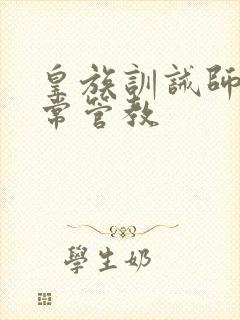 皇族訓誡師
常管教
學生奶